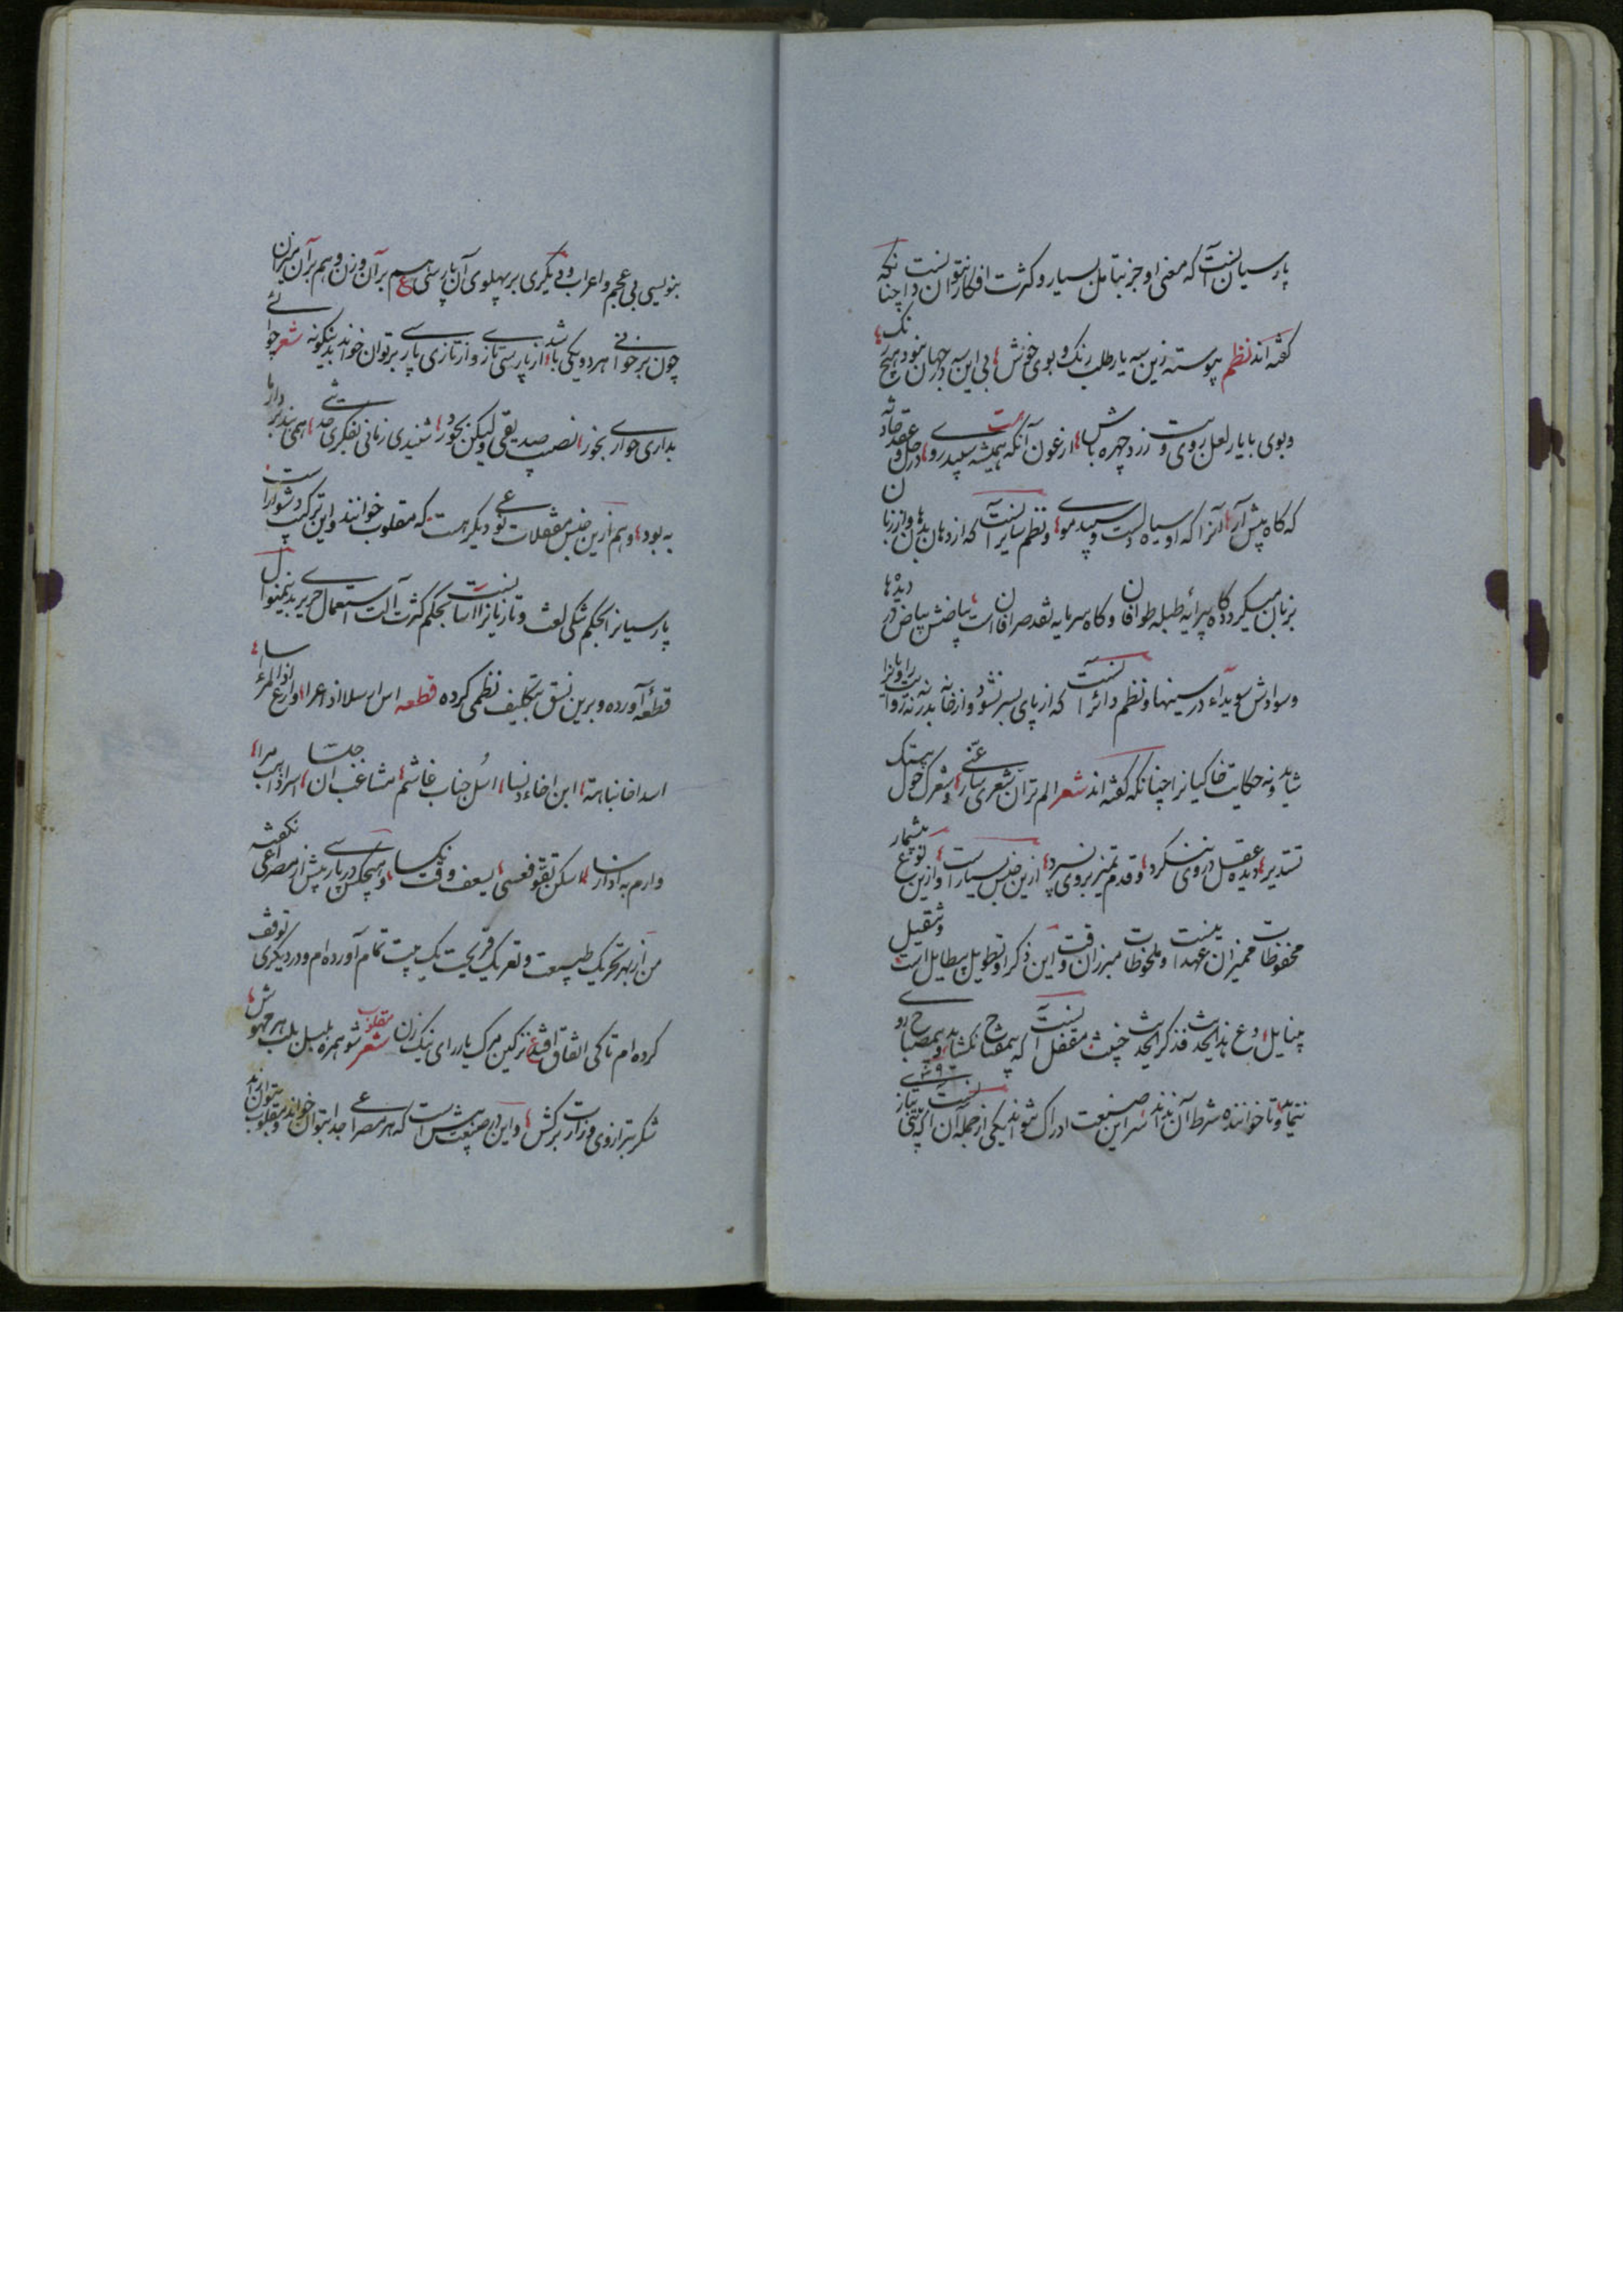 پارسیان آنست که معنی او جز بتامل بسیار و کثرت افکار نتوان دانست چنانکه
گفته‌اند نظم پیوسته زین سه یار طلب رنک و بوی خوش بی این سه در جهان نبود هیچ رنک
و بوی با یار لعل روی و ترش زرد چهره باش ارغون آنکه همیشه سپیدروی است در حل و عقد حادثه
که کاه پیش آر آنرا که او سیاه دلست و سپید موی و نظم سایر آنست که از دهان بدهان و از زبان
بزبان میکردد کاه پیرایه طبله طوافان و کاه سرمایه نقد صرافان است بیاضش بیاض در دیده‌ها
و سوادش سویداء در سینها و نظم دائر آنست که از پای بسر نشود و از خانه بدر نه روایت را
شاید و نه حکایت خاکیانرا چنانکه گفته‌اند شعر الم تر ان شعری سار عنی و شعرک حول بیتک
تستدیر دیده عقل در وی ننکرد و قدم تمیز بروی نسپرد ازین جنس بسیارست و ازین نوع بیشمار
محفوظات ممیزان عهد اینست و ملحوظات مبرزان وقت این ذکر او تطویل بیطایل است و تثقیل
بینایل و دع هذا الحدیث فذکر الحدیث خبیث مقفل آنست که بمفتاح نکشاید و بمصباح روی
ننماید و تا خواننده شرط آن نداند سر این صنعت ادراک نتواند یکی از جمله آن آنست که بیتی تازی
بنویسی بی عجم و اعراب و دیکری بر پهلوی آن پارسی هم بر آن وزن و هم بر آن میزان
چون برخوانی هر دو یکی باشد از پارسی تازی و از تازی پارسی بر توان خواند بدینکونه شعر
بداری جواری بخور نصب صدیقی ولیکن بجود شنیدی زمانی تفکری
به بود و هم ازین جنس مقفلات نوعی دیکر هست که مقلوب خوانند و این ترکیب دشوارست
پارسیانرا بحکم تنکی لغت و تازیانرا آسانست بحکم کثرت آلت استعمال حریری بدینمنوال
قطعه آورده و برین نسق بتکلیف نظمی کرده قطعه اس ارملا اذا عرا وارع اذا المرء اسا
اسند اخا نباهة ابن اخاء دنسا اسل جناب غاشم مشاغب ان جلسا اسر اذا هب مرا
وارم به اذا رسا اسکن تقو فعسی یسعف وقت نکسا و هیچکس در پارسی پیش از مصراعی نکفته
من از بهر تحریک طبیعت و تعریک قریحت یک بیت تمام آورده‌ام و در دیکری توقف
کرده‌ام تا کی اتفاق افتد ع نزکین مرک یار رای نیک زن شعر مقلوب شو همره بلبل بلب هر مهوش
شکر بترازوی وزارت برکش و این در صنعت بیش است که هر مصراعی جدا بتوان خواند و مقلوب بتوان‌ آند